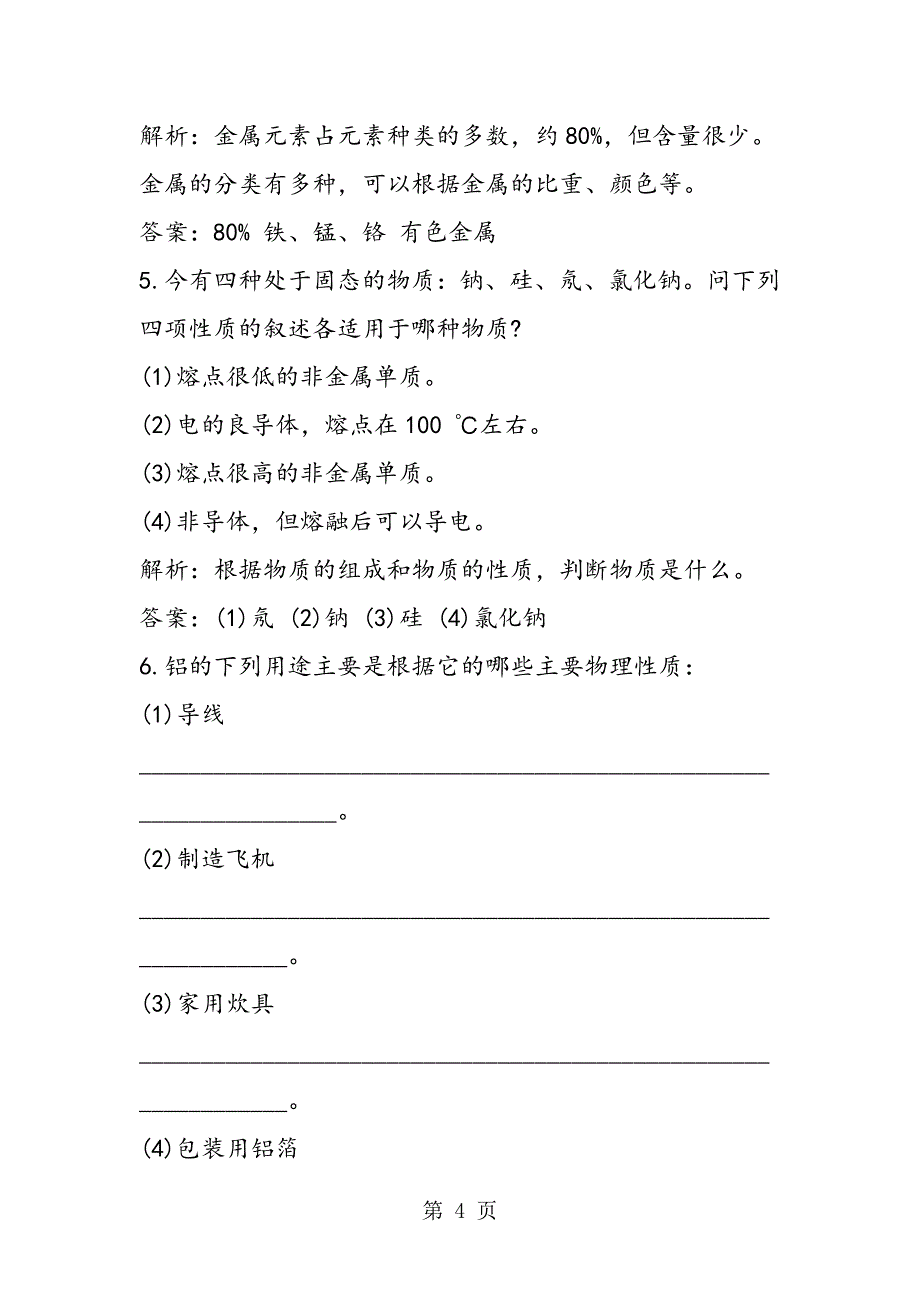 解析：金属元素占元素种类的多数，约80%，但含量很少。
金属的分类有多种，可以根据金属的比重、颜色等。
答案：80% 铁、锰、铬 有色金属
5.今有四种处于固态的物质：钠、硅、氖、氯化钠。问下列
四项性质的叙述各适用于哪种物质?
(1)熔点很低的非金属单质。
(2)电的良导体，熔点在100 ℃左右。
(3)熔点很高的非金属单质。
(4)非导体，但熔融后可以导电。
解析：根据物质的组成和物质的性质，判断物质是什么。
答案：(1)氖 (2)钠 (3)硅 (4)氯化钠
6.铝的下列用途主要是根据它的哪些主要物理性质：
(1)导线
___________________________________________________
________________。
(2)制造飞机
___________________________________________________
____________。
(3)家用炊具
___________________________________________________
____________。
(4)包装用铝箔
第 4 页